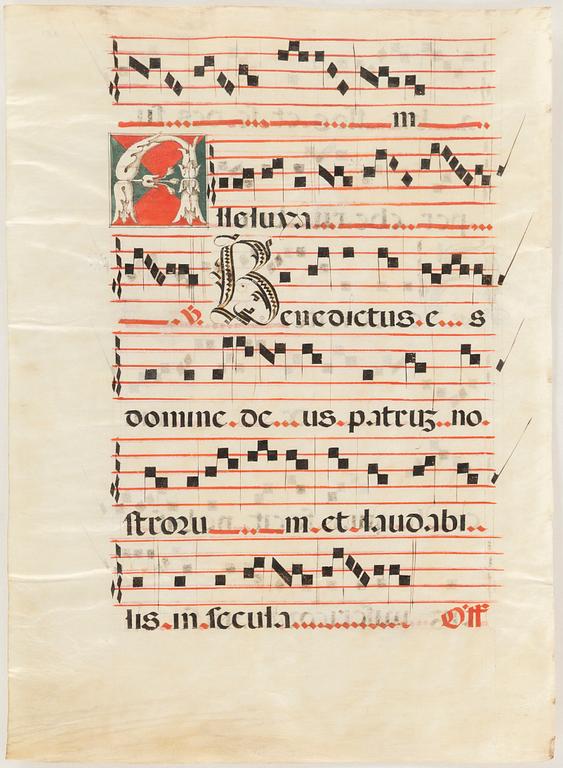 m
Alleluya
℣. Benedictus. e... s
domine. de... us. patruꝫ.. no.
ſtroꝛu m. et. laudabi..
lis. in. ſecula Off